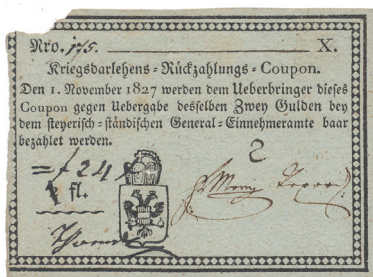 Nro. 175. X.
Kriegsdarlehens = Rückzahlungs = Coupon.
Den 1. November 1827 werden dem Ueberbringer dieses
Coupon gegen Uebergabe desselben Zwey Gulden bey
dem steyerisch = ständischen General = Einnehmeramte baar
bezahlet werden.
2
= f 24 x
fl.